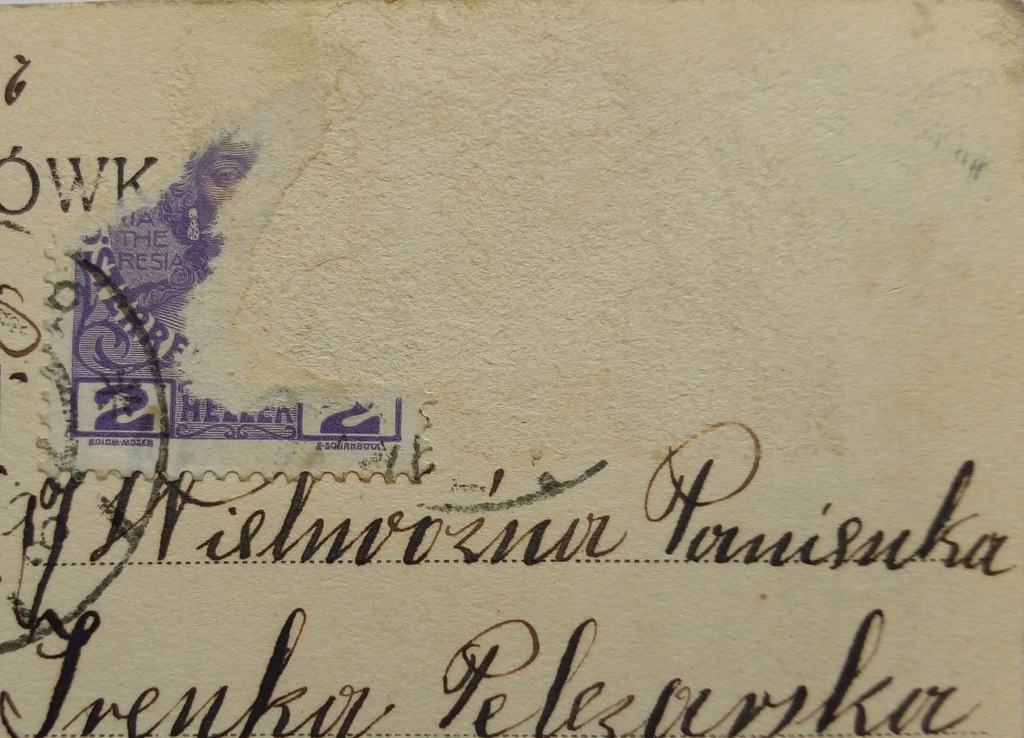 ÓWK
IA
THE
RESIA
STERRE
2 HELLER 2
KOLOM·MOSER F·SCHIRNBÖCK
Wielmoźna Panienka
Irenka Pelczarska